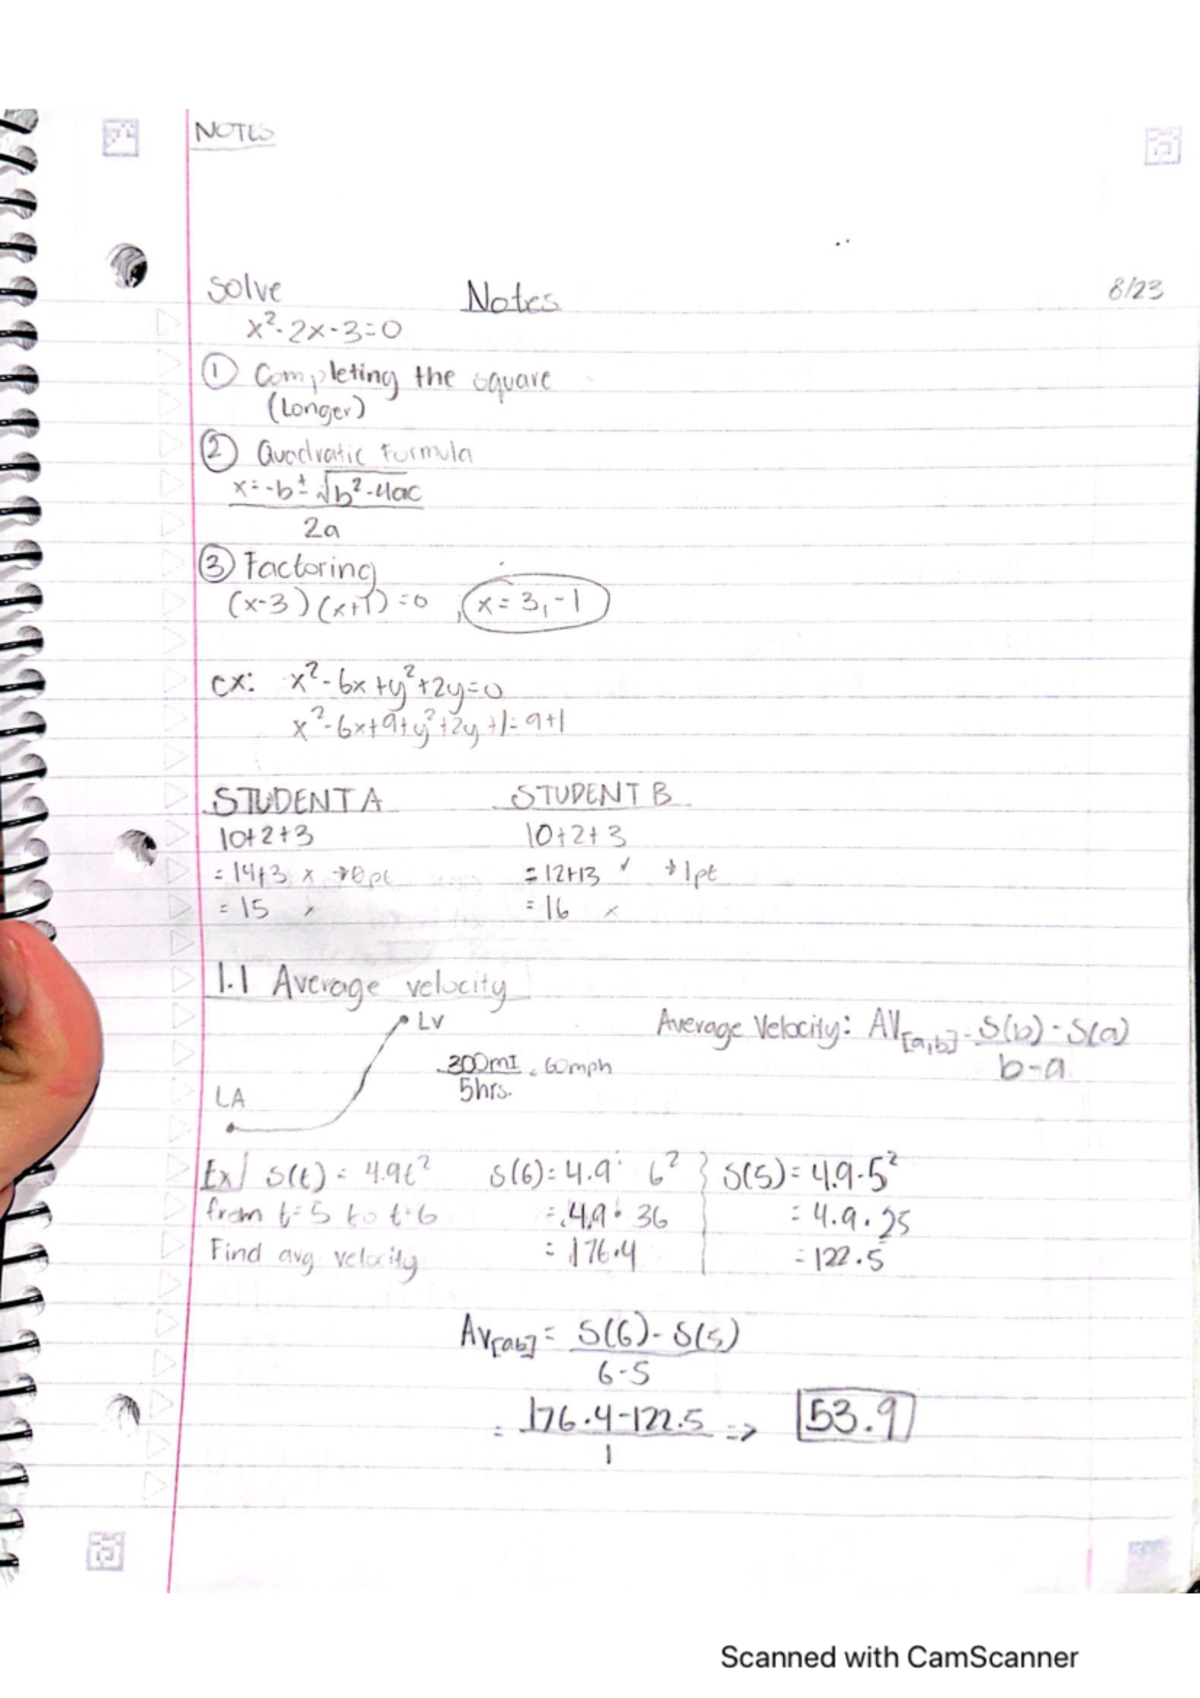 NOTES
Solve Notes 8/23
x²-2x-3=0
① Completing the square
(Longer)
② Quadratic Formula
x=-b±√b²-4ac
2a
③ Factoring
(x-3)(x+1)=0 , x=3,-1
ex: x²-6x+y²+2y=0
x²-6x+9+y²+2y+1=9+1
STUDENT A STUDENT B
10+2+3 10+2+3
=14+3 x → 0pt =12+13 ✓ → 1pt
=15 x =16 x
1.1 Average velocity
LV Average Velocity: AV[a,b] = S(b)-S(a)
b-a
300mi = 60mph
5hrs.
LA
Ex] S(t)=4.9t² S(6)=4.9·6² S(5)=4.9·5²
from t=5 to t=6 =4.9·36 =4.9·25
Find avg velocity =176.4 =122.5
AV[ab] = S(6)-S(5)
6-5
= 176.4-122.5 => 53.9
1
Scanned with CamScanner